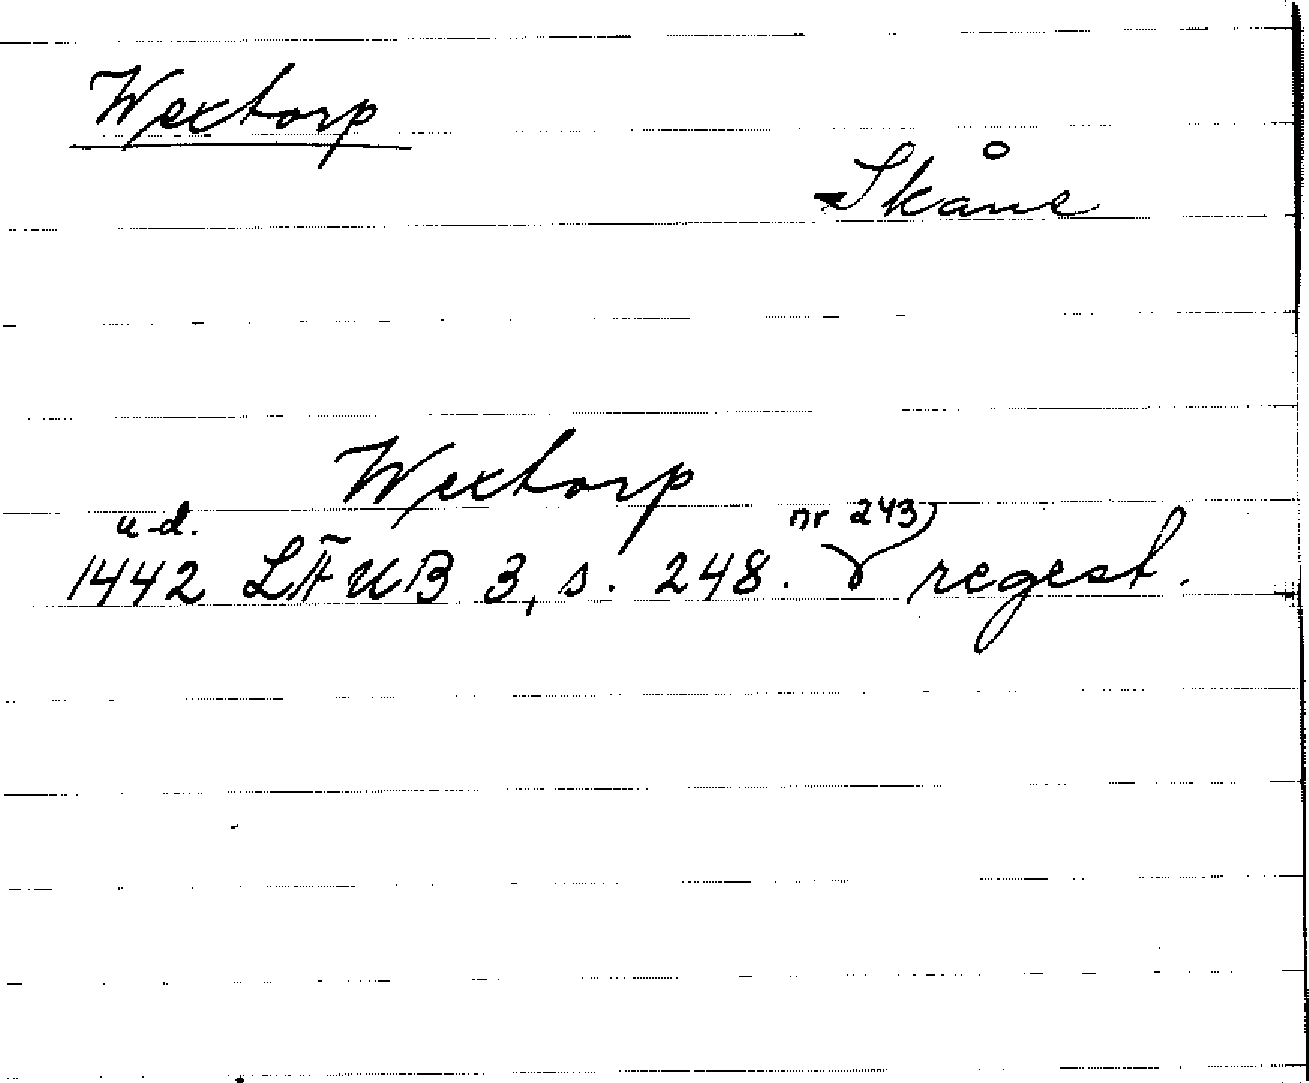 Wextorp
Skåne
Wextorp
u.d. nr 243
1442 LÄUB 3, s. 248. regest.